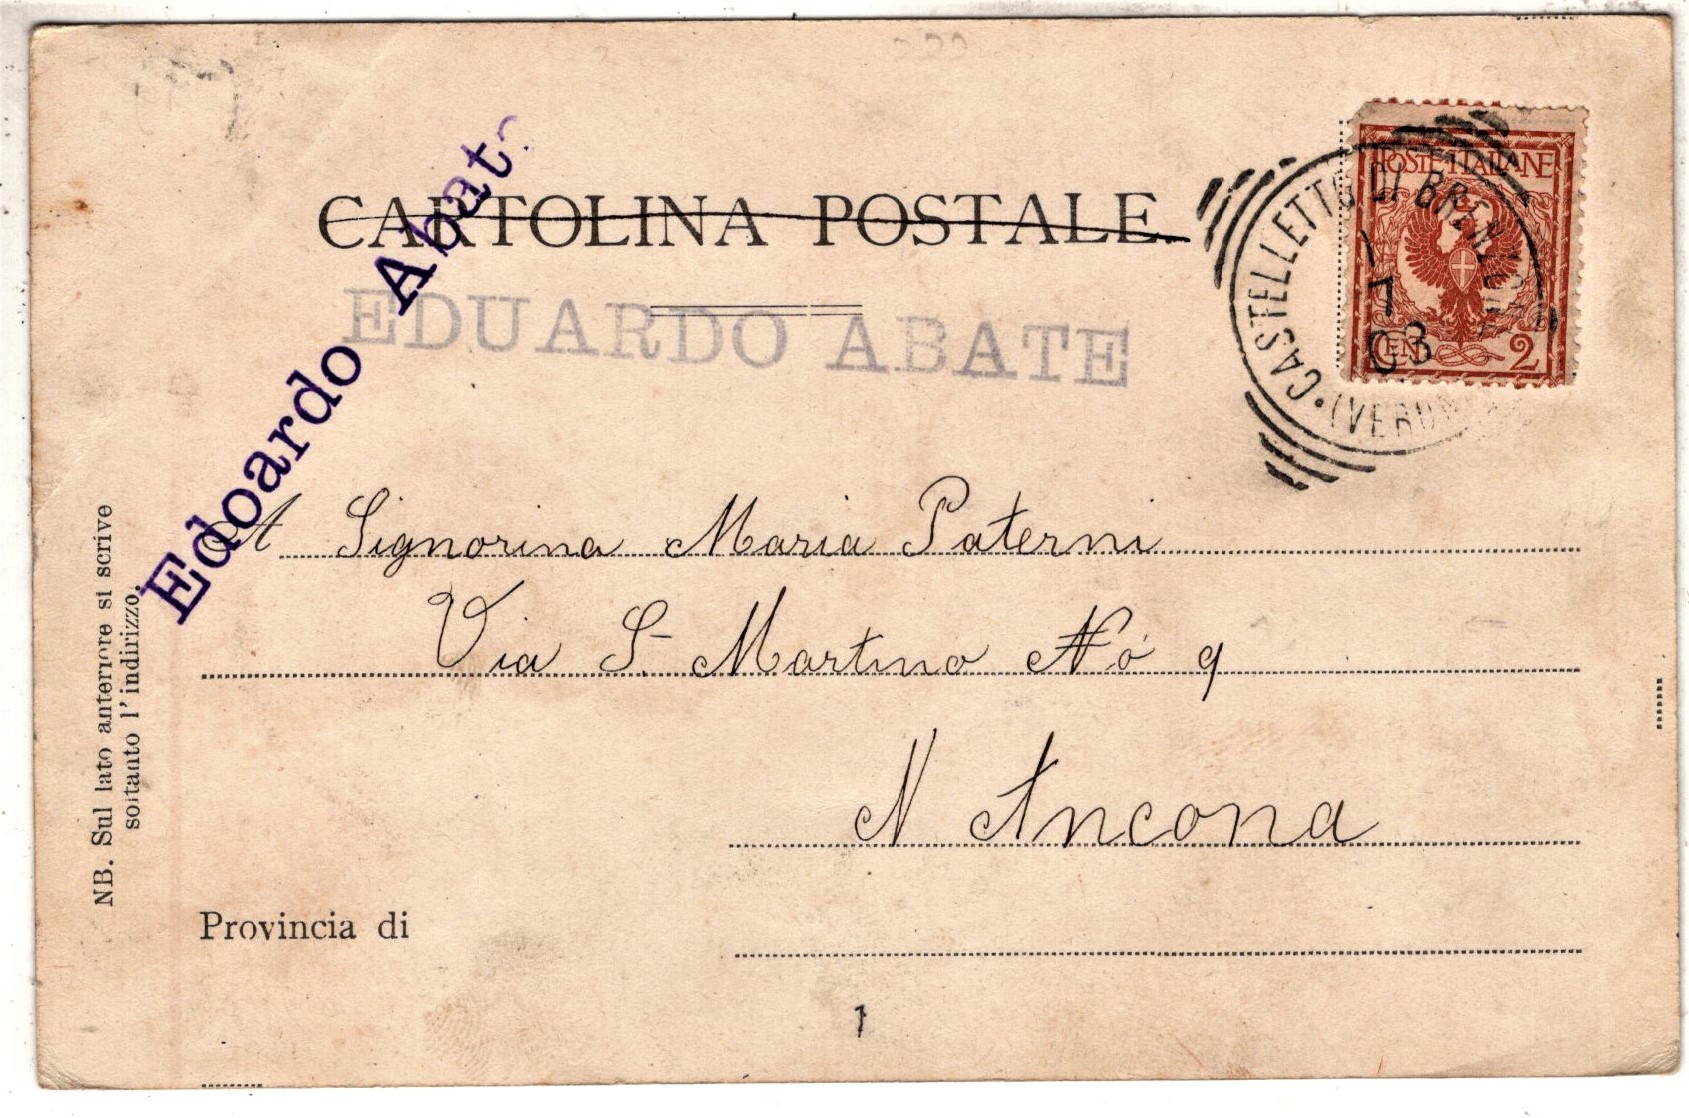 CARTOLINA POSTALE.
EDUARDO ABATE
Edoardo Abat
POSTE ITALIANE
CEN 2
CASTELLETTO DI BRENZONE
(VERONA
1
7
03
A Signorina Maria Paterni
Via S. Martino No 9
Ancona
Provincia di
NB. Sul lato anteriore si scrive
soltanto l' indirizzo.
1